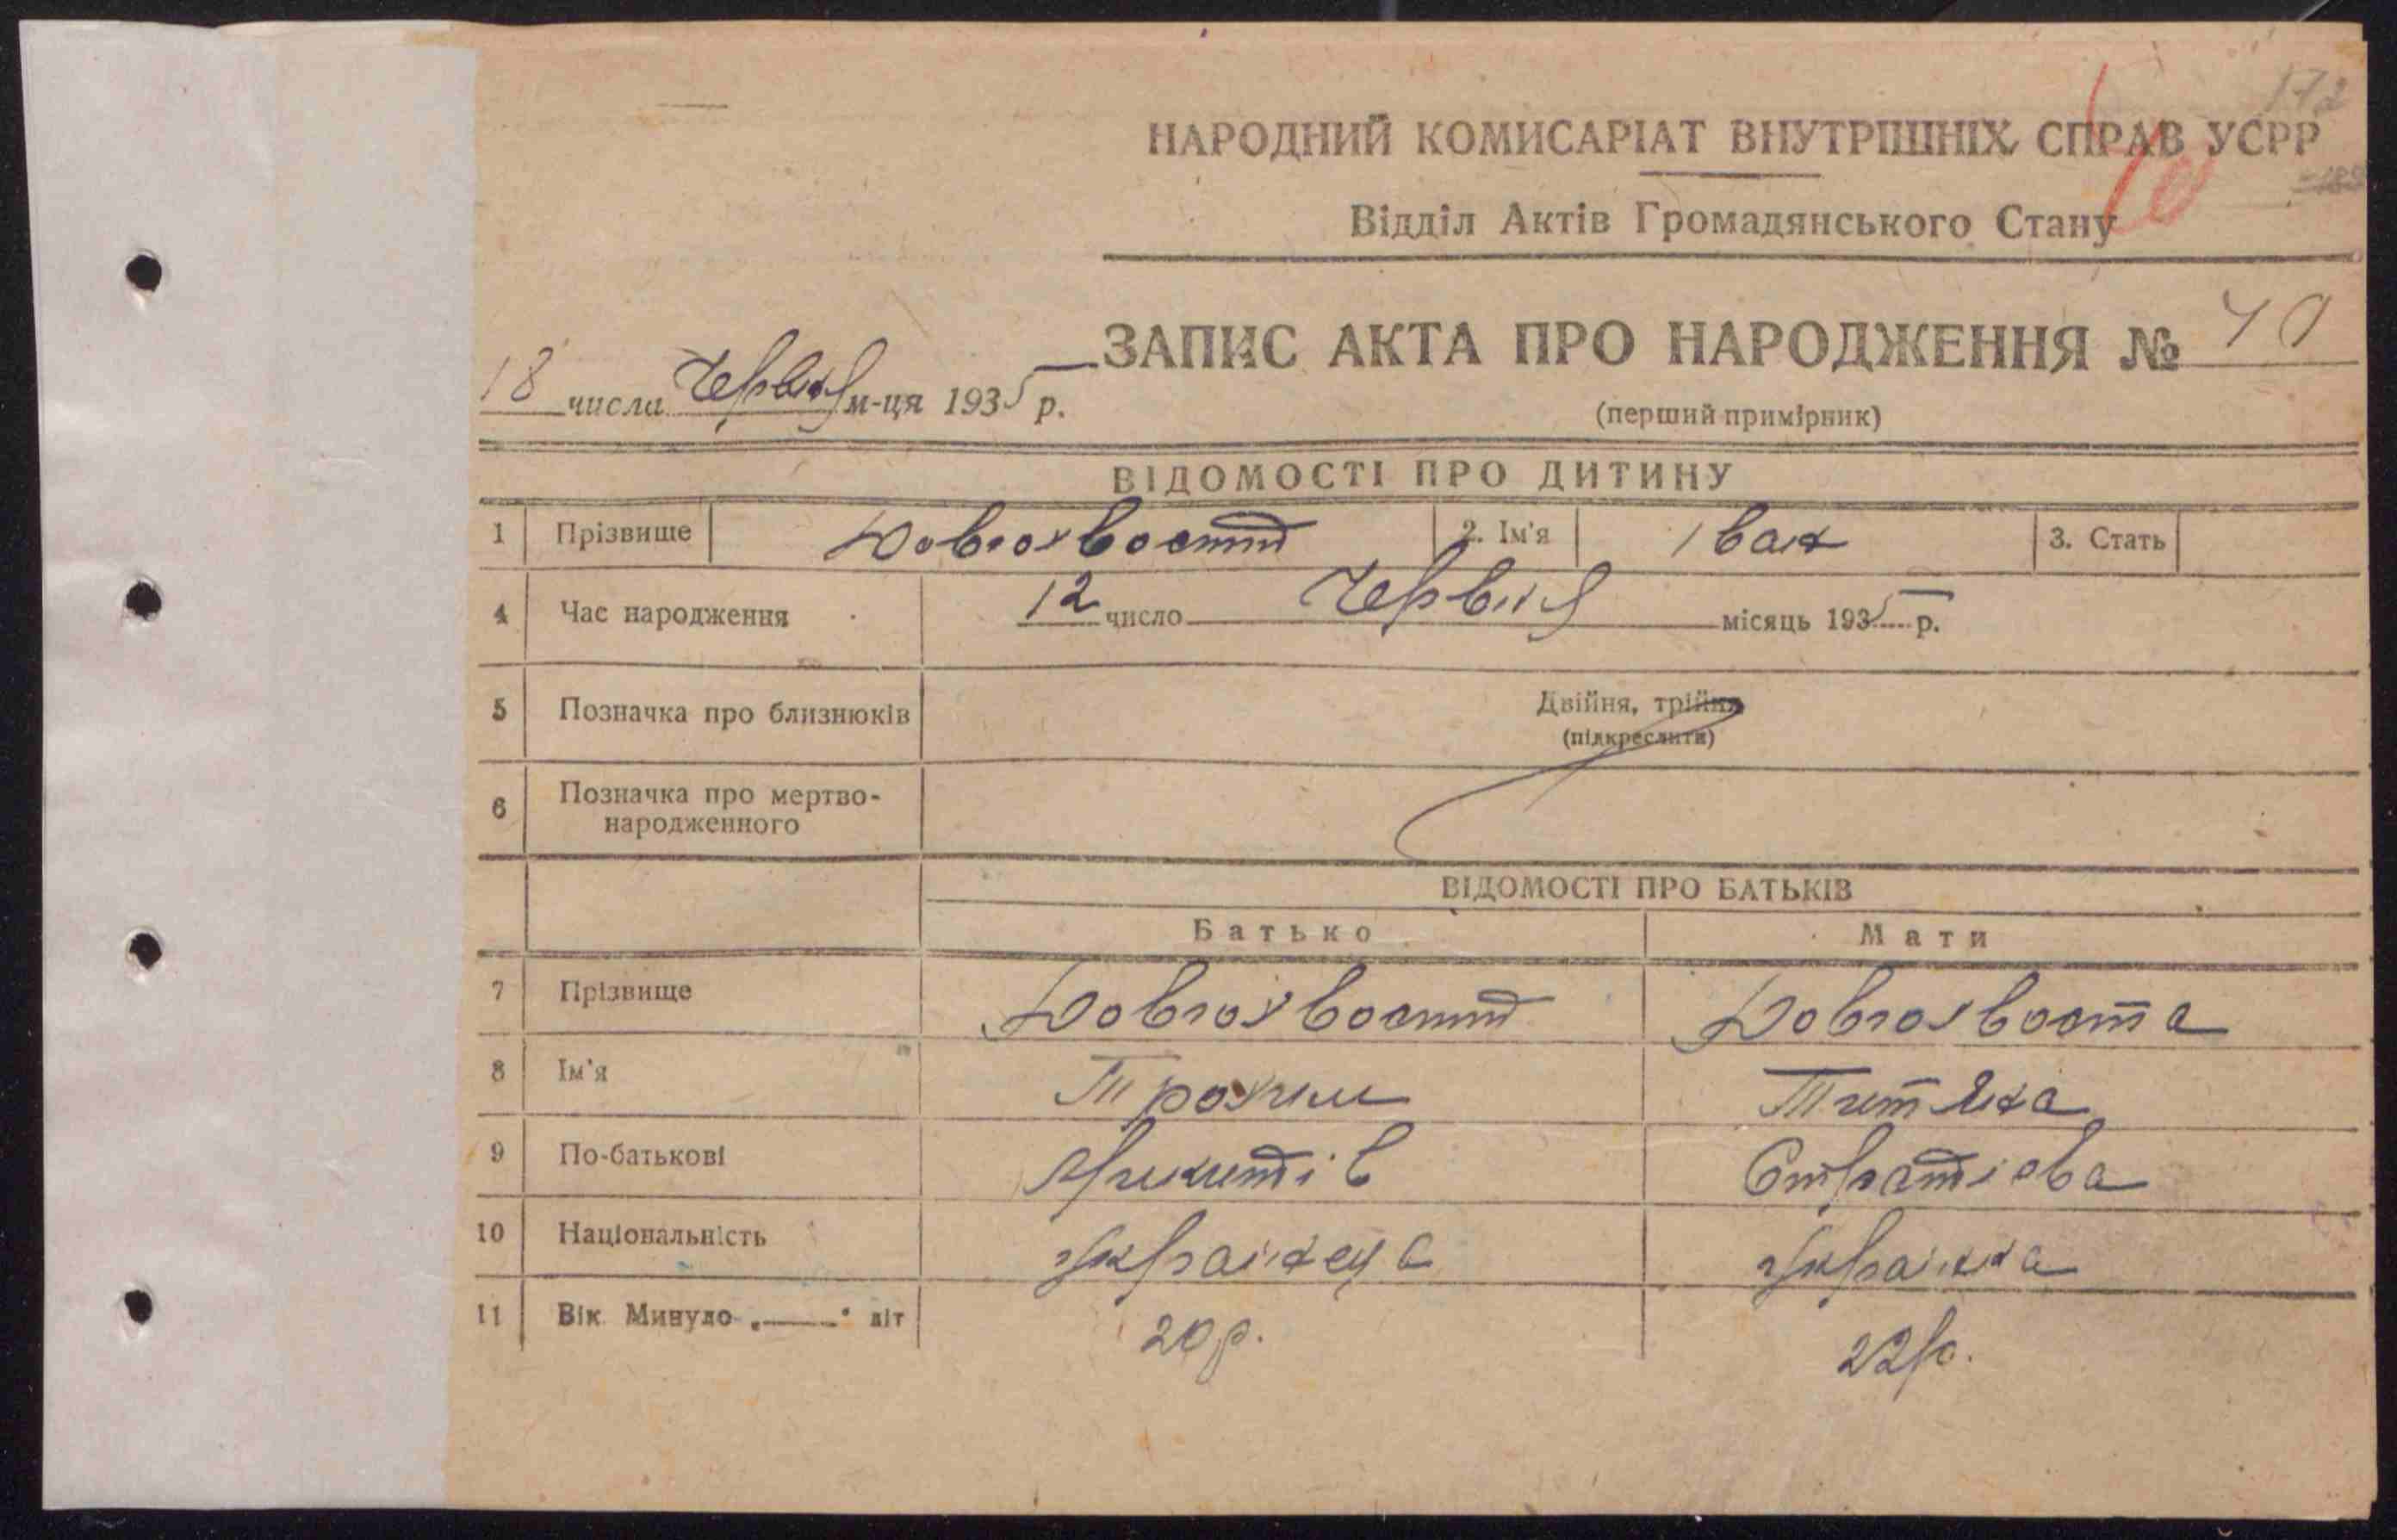 172
НАРОДНИЙ КОМИСАРІАТ ВНУТРІШНІХ СПРАВ УСРР
Відділ Актів Громадянського Стану
ЗАПИС АКТА ПРО НАРОДЖЕННЯ № 70
18 числа Червня м-ця 1935 р.
(перший примірник)
ВІДОМОСТІ ПРО ДИТИНУ
1 Прізвище Довгохвостт 2. Ім'я Іван 3. Стать
4 Час народження 12 число Червня місяць 1935 р.
5 Позначка про близнюків Двійня, трійня
(підкреслити)
6 Позначка про мертво-
народженного
ВІДОМОСТІ ПРО БАТЬКІВ
Батько Мати
7 Прізвище Довгохвостт Довгохвоста
8 Ім'я Трохим Титяна
9 По-батькові Микитів
10 Національність українець українка
11 Вік. Минуло „——“ літ 20 р. 22 р.